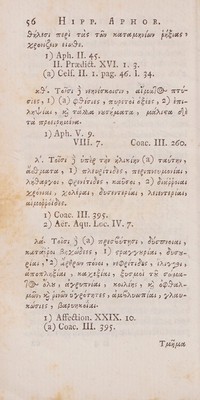 56 HIPP. APHOR.
θήλεσι περὶ τὰς τῶν καταμηνίων ῥήξιας
χρονίζειν εἴωθε.
1) Aph. II. 45.
II. Prædict. XVI. 1. 3.
(a) Celf. II. 1. pag. 46. l. 34.
κθ. Τοῖσι δὲ νεηνίσκοισιν, αἵματος πτύ-
σιες, 1) (a) φθίσιες, πυρετοὶ ὀξέες, 2) ἐπι-
ληψίαι, καὶ τἆλλα νοσήματα, μάλιστα δὲ
τὰ προειρημένα.
1) Aph. V. 9.
VIII. 7. Coac. III. 260.
λ. Τοῖσι δὲ ὑπὲρ τὴν ἡλικίην (a) ταύτην,
ἄσθματα, 1) πλευρίτιδες, περιπνευμονίαι,
λήθαργοι, φρενίτιδες, καῦσοι, 2) διάῤῥοιαι
χρόνιαι, χολέραι, δυσεντερίαι, λειεντερίαι,
αἱμοῤῥοΐδες.
1) Coac. III. 395.
2) Aer. Aqu. Loc. IV. 7.
λα. Τοῖσι δὲ (a) πρεσβύτῃσι, δύσπνοιαι,
κατάῤῥοι βηχώδεες, 1) στραγγυρίαι, δυσου-
ρίαι, 2) ἄρθρων πόνοι, νεφρίτιδες, ἴλιγγοι,
ἀποπληξίαι, καχεξίαι, ξυσμοὶ τοῦ σώμα-
τος ὅλου, ἀγρυπνίαι, κοιλίης καὶ ὀφθαλ-
μῶν καὶ ῥινῶν ὑγρότητες, ἀμβλυωπίαι, γλαυ-
κώσιες, βαρυηκοΐαι.
1) Affection. XXIX. 10.
(a) Coac. III. 395.
Τμῆμα